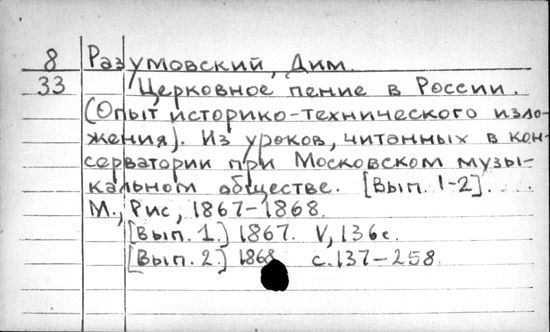 8 Разумовский, Дим.
33 Церковное пение в России.
(Опыт историко-технического изло-
жения). Из уроков, читанных в кон-
серватории при Московском музы-
кальном обществе. [Вып. 1-2].
М., Рис, 1867-1868.
[Вып. 1.] 1867. V, 136 с.
[Вып. 2.] 1868 с. 137-258.